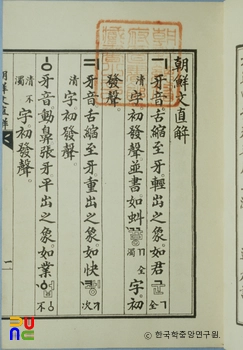 朝鮮文直解
ㄱ牙音舌縮至牙輕出之象如君全
清字初發聲並書如虯全濁字初
發聲
ㅋ牙音舌縮至牙重出之象如快次
清字初發聲
ㆁ牙音動鼻張牙平出之象如業不
清不濁字初發聲
朝鮮文直解
一
© 한국학중앙연구원